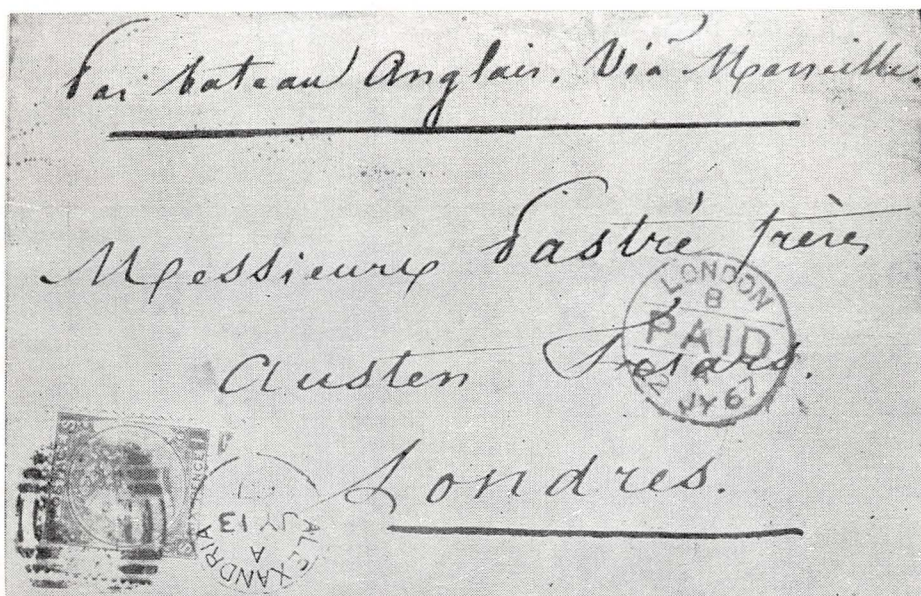 Par bateau Anglais. Viâ Marseille.
Messieurs Pastré frères
Austen friars.
Londres.
LONDON
8
PAID
JY 67
ALEXANDRIA
A
JY 13